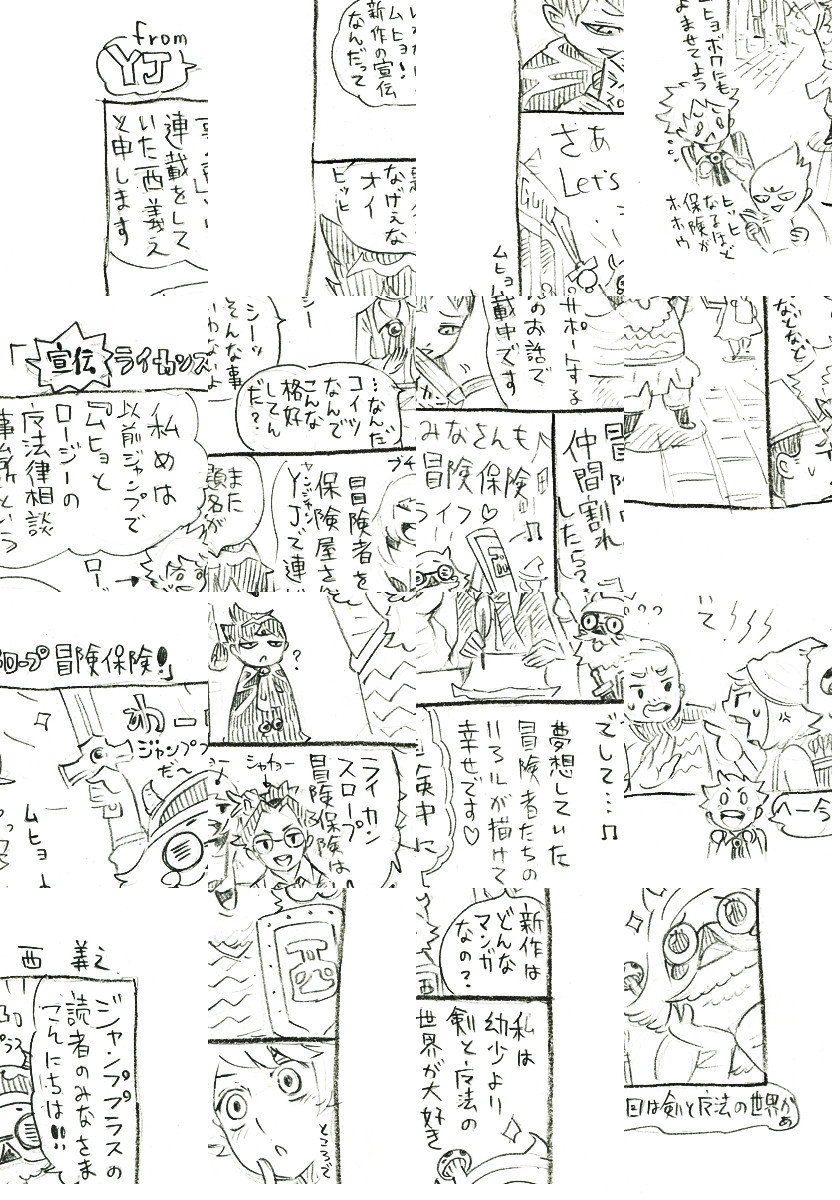 from
YJ
連載をして
いた西義之
と申します
ムヒョ!
新作の宣伝
なんだって
なげぇな
オイ
ヒッヒ
さあ
Let's
ムヒョボクにも
よませてよう
ヒッヒ
なるほど
保険が
ホホウ
「宣伝 ライカンス
私めは
以前ジャンプで
『ムヒョと
ロージーの
魔法律相談
事ム所』という
ロー
シーッ
そんな事
いわないよ
…なんだ
コイツ
なんで
こんな
格好
してん
だ?
また
題名が
冒険者を
保険屋さん
YJで連
ヤンジャン
ブチ
サポートする
のお話で
載中です
ムヒョ
みなさんも
冒険保険
ライフ♡
仲間割れ
したら?
などなど
スロープ冒険保険!」
わー
ジャンプ
だ〜
ムヒョ
?
ライカン
スロープ
冒険保険は
シャわー
でして…♫
夢想していた
冒険者たちの
リアルが描けて
幸せです♡
へー今
西 義之
ジャンププラスの
読者のみなさま
こんにちは!!
ところで
新作は
どんな
マンガ
なの?
西
私は
幼少より
剣と魔法の
世界が大好き
回は剣と魔法の世界かぁ